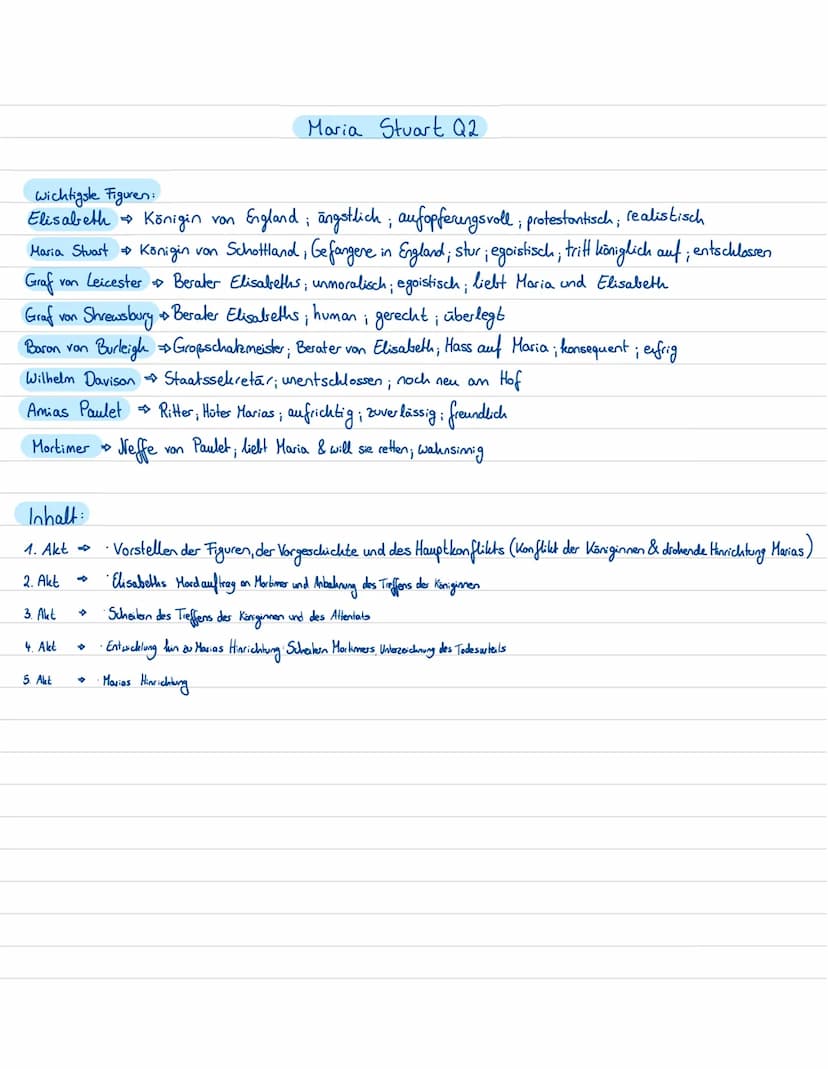 Maria Stuart Q2
Wichtigste Figuren:
Elisabeth ⇒ Königin von England ; ängstlich ; aufopferungsvoll ; protestantisch ; realistisch
Maria Stuart ⇒ Königin von Schottland ; Gefangene in England ; stur ; egoistisch ; tritt königlich auf ; entschlossen
Graf von Leicester ⇒ Berater Elisabeths ; unmoralisch ; egoistisch ; liebt Maria und Elisabeth
Graf von Shrewsbury ⇒ Berater Elisabeths ; human ; gerecht ; überlegt
Baron von Burleigh ⇒ Großschatzmeister ; Berater von Elisabeth ; Hass auf Maria ; konsequent ; eifrig
Wilhelm Davison ⇒ Staatssekretär ; unentschlossen ; noch neu am Hof
Amias Paulet ⇒ Ritter ; Hüter Marias ; aufrichtig ; zuverlässig ; freundlich
Mortimer ⇒ Neffe von Paulet ; liebt Maria & will sie retten ; wahnsinnig
Inhalt:
1. Akt ⇒ · Vorstellen der Figuren, der Vorgeschichte und des Hauptkonflikts (Konflikt der Königinnen & drohende Hinrichtung Marias)
2. Akt ⇒ · Elisabeths Mordauftrag an Mortimer und Anbahnung des Treffens der Königinnen
3. Akt ⇒ · Scheitern des Treffens der Königinnen und des Attentats
4. Akt ⇒ · Entwicklung hin zu Marias Hinrichtung: Scheitern Mortimers, Unterzeichnung des Todesurteils
5. Akt ⇒ · Marias Hinrichtung